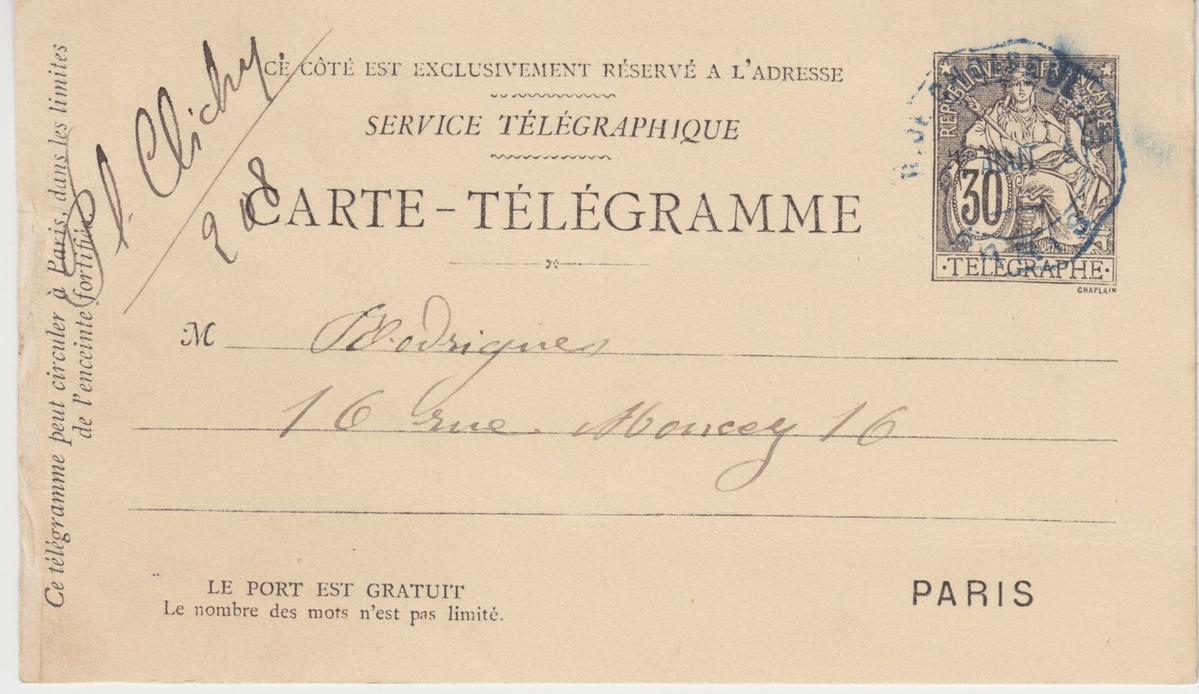 CE CÔTÉ EST EXCLUSIVEMENT RÉSERVÉ A L'ADRESSE
SERVICE TÉLÉGRAPHIQUE
CARTE-TÉLÉGRAMME
Clichy
208
RÉPUBLIQUE FRANÇAISE
30
·TÉLÉGRAPHE·
CHAPLAIN
AOUT
M Rodrigues
16 rue Moncey 16
LE PORT EST GRATUIT
Le nombre des mots n'est pas limité.
PARIS
Ce télégramme peut circuler à Paris, dans les limites
de l'enceinte fortifiée